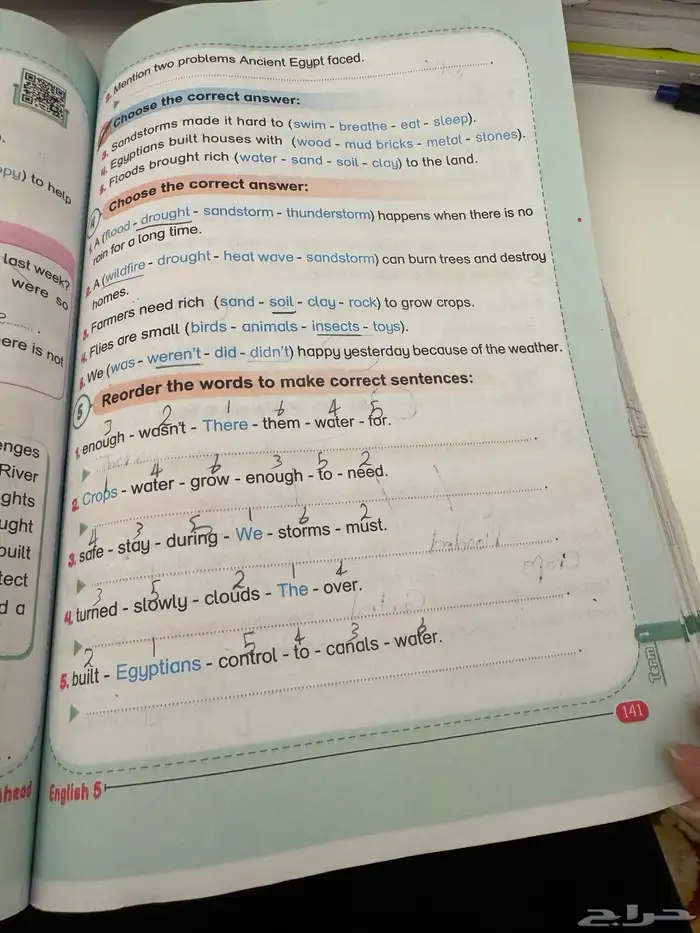 2. Mention two problems Ancient Egypt faced.
Choose the correct answer:
3. Sandstorms made it hard to (swim - breathe - eat - sleep).
4. Egyptians built houses with (wood - mud bricks - metal - stones).
5. Floods brought rich (water - sand - soil - clay) to the land.
4 Choose the correct answer:
1. A (flood - drought - sandstorm - thunderstorm) happens when there is no
rain for a long time.
2. A (wildfire - drought - heat wave - sandstorm) can burn trees and destroy
homes.
3. Farmers need rich (sand - soil - clay - rock) to grow crops.
4. Flies are small (birds - animals - insects - toys).
5. We (was - weren't - did - didn't) happy yesterday because of the weather.
5 Reorder the words to make correct sentences:
3 2 1 6 4 5
1. enough - wasn't - There - them - water - for.
1 4 6 3 5 2
2. Crops - water - grow - enough - to - need.
4 3 5 1 6 2
3. safe - stay - during - We - storms - must.
3 5 2 1 4
4. turned - slowly - clouds - The - over.
2 1 5 4 3 6
5. built - Egyptians - control - to - canals - water.
Term 1
141
English 5
ppy) to help
last week?
were so
ere is not
enges
River
ghts
ught
built
tect
d a
head
حراج